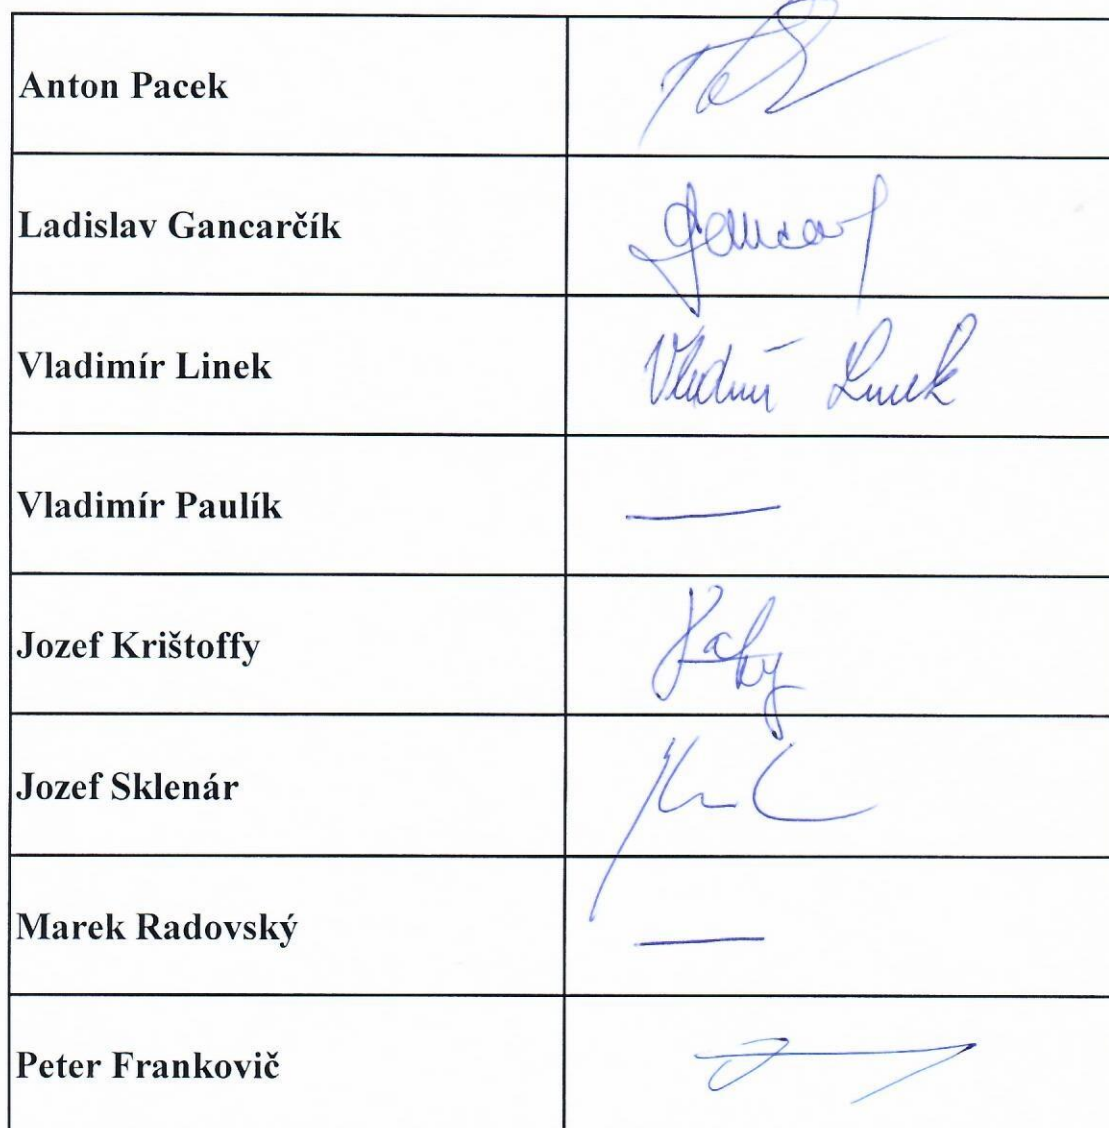 Anton Pacek
Ladislav Gancarčík
Vladimír Linek
Vladimír Linek
Vladimír Paulík
—
Jozef Krištoffy
Jozef Sklenár
Marek Radovský
—
Peter Frankovič